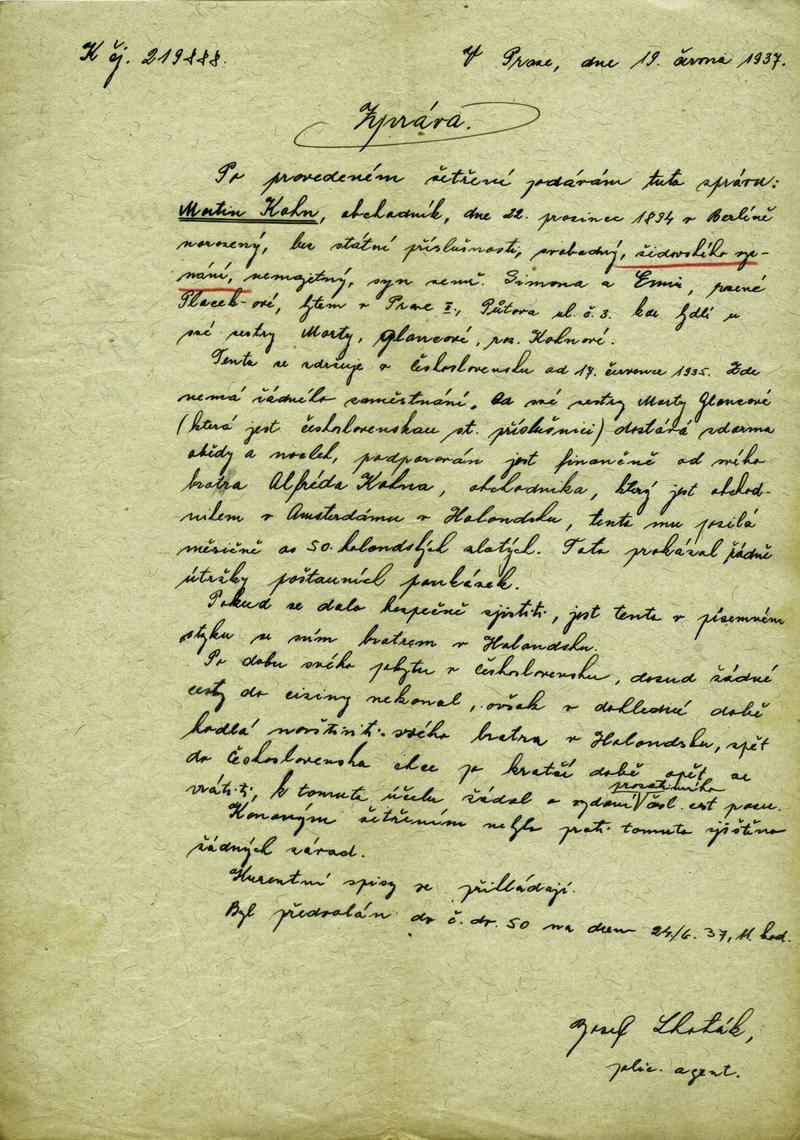 K čj. 219888.
V Praze, dne 19. června 1937.
Zpráva.
Po provedeném šetření podávám tuto zprávu:
Martin Kohn, obchodník, dne 22. prosince 1894 v Berlíně
narozený, bez státní příslušnosti, svobodný, židovského vy-
znání, nemajetný, syn zemř. Simona a Emmi, rozené
Placek-ové, bytem v Praze II., Půtova ul. č. 3. kde bydlí u
své sestry Marty, Glancové, roz. Kohnové.
Tento se zdržuje v Československu od 17. července 1935. Zde
nemá žádného zaměstnání. Od své sestry Marty Glancové
(která jest československou st. příslušnicí) dostává zdarma
obědy a nocleh, podporován jest finančně od svého
bratra Alfréda Kohna, obchodníka, který jest obchod-
níkem v Amsterdámu v Holandsku, tento mu posílá
měsíčně as 50. holandských zlatých. Toto prokázal řádně
útržky poštovních poukázek.
Pokud se dalo bezpečně zjistiti, jest tento v písemném
styku se svým bratrem v Holandsku.
Po dobu svého pobytu v Československu, dosud žádné
cesty do ciziny nekonal, však v dohledné době
hodlá navštíviti svého bratra v Holandsku, zpět
do Československa chce po kratší době opět se
vrátiti, k tomuto účelu žádal o vydání prozatimního čsl. cest. pasu.
Konaným šetřením nebylo proti tomuto zjištěno
žádných závad.
Kurentní spisy se přikládají.
Byl předvolán do č. dv. 50 na den 24/6. 37, 11. hod.
Josef Lhoták,
polic. agent.